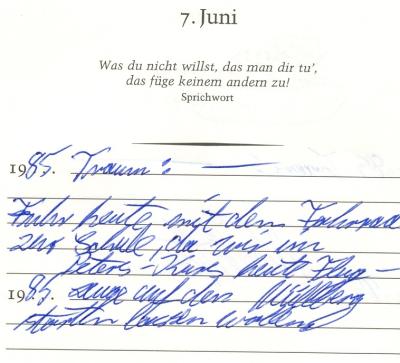 7. Juni
Was du nicht willst, das man dir tu',
das füge keinem andern zu!
Sprichwort
1985. Traum:
Fuhr heute mit dem Fahrrad
zur Schule, da wir im
Peters-Kurs heute Flug-
1985. zeuge auf dem Mühlberg
starten lassen wollen